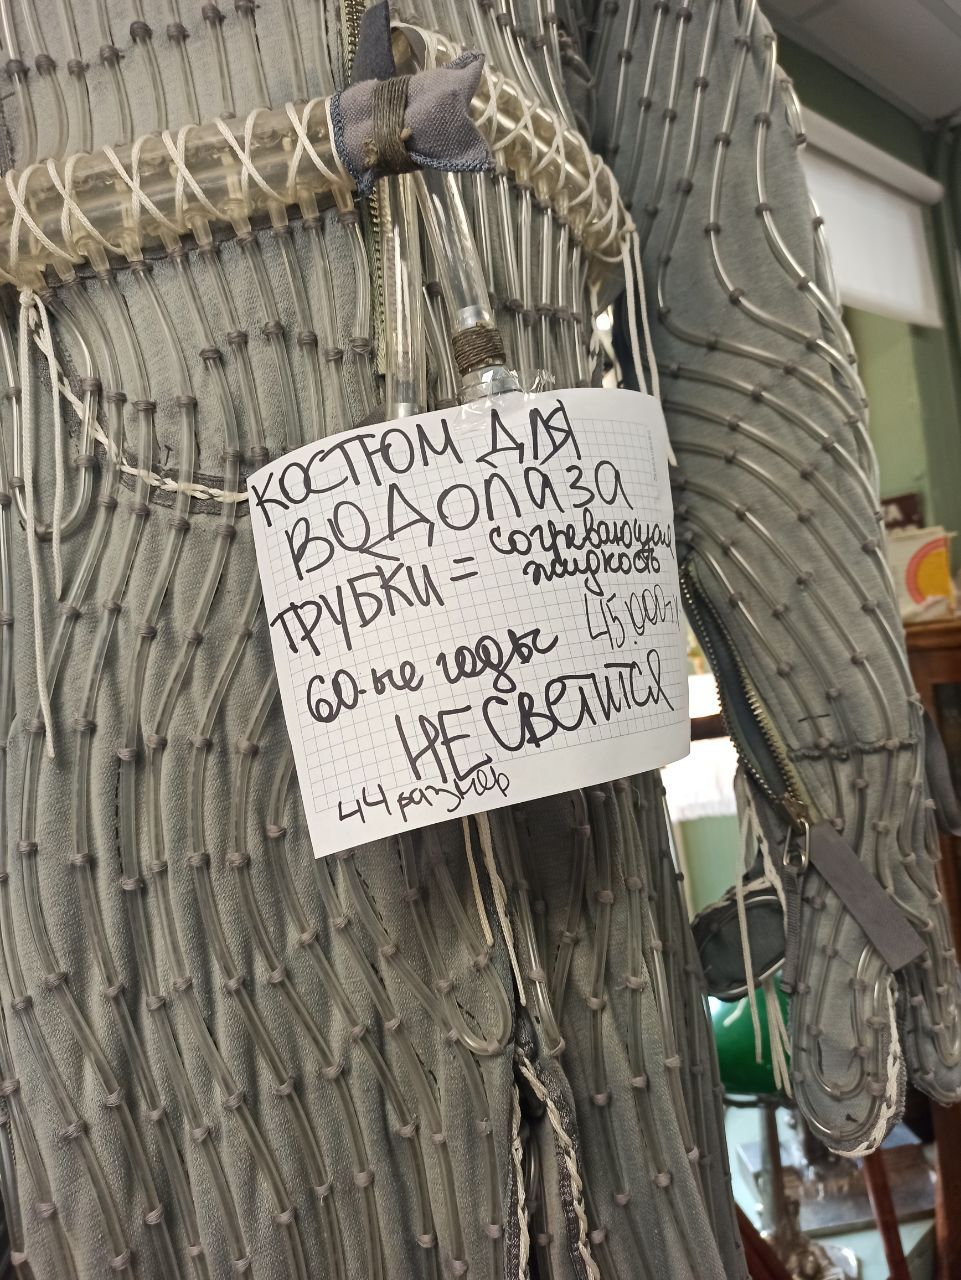 КОСТЮМ ДЛЯ
ВОДОЛАЗА
ТРУБКИ = согревающая
жидкость
45.000-
60-ые годы
НЕ СВЕТИТСЯ
44 размер